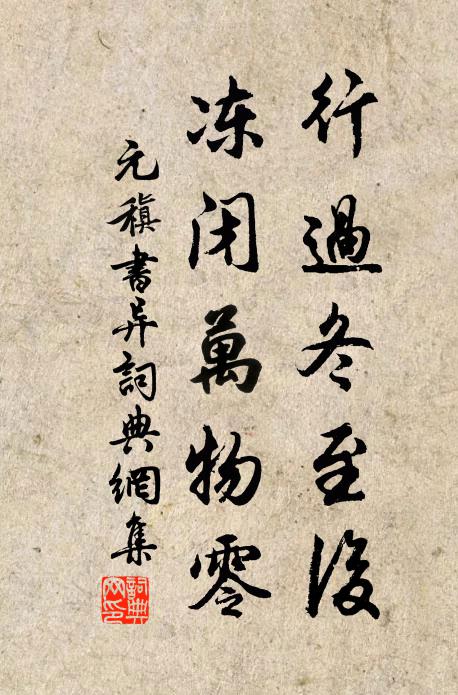 行過冬至後
冻闭萬物零
元稹書异詞典網集
詞典網印